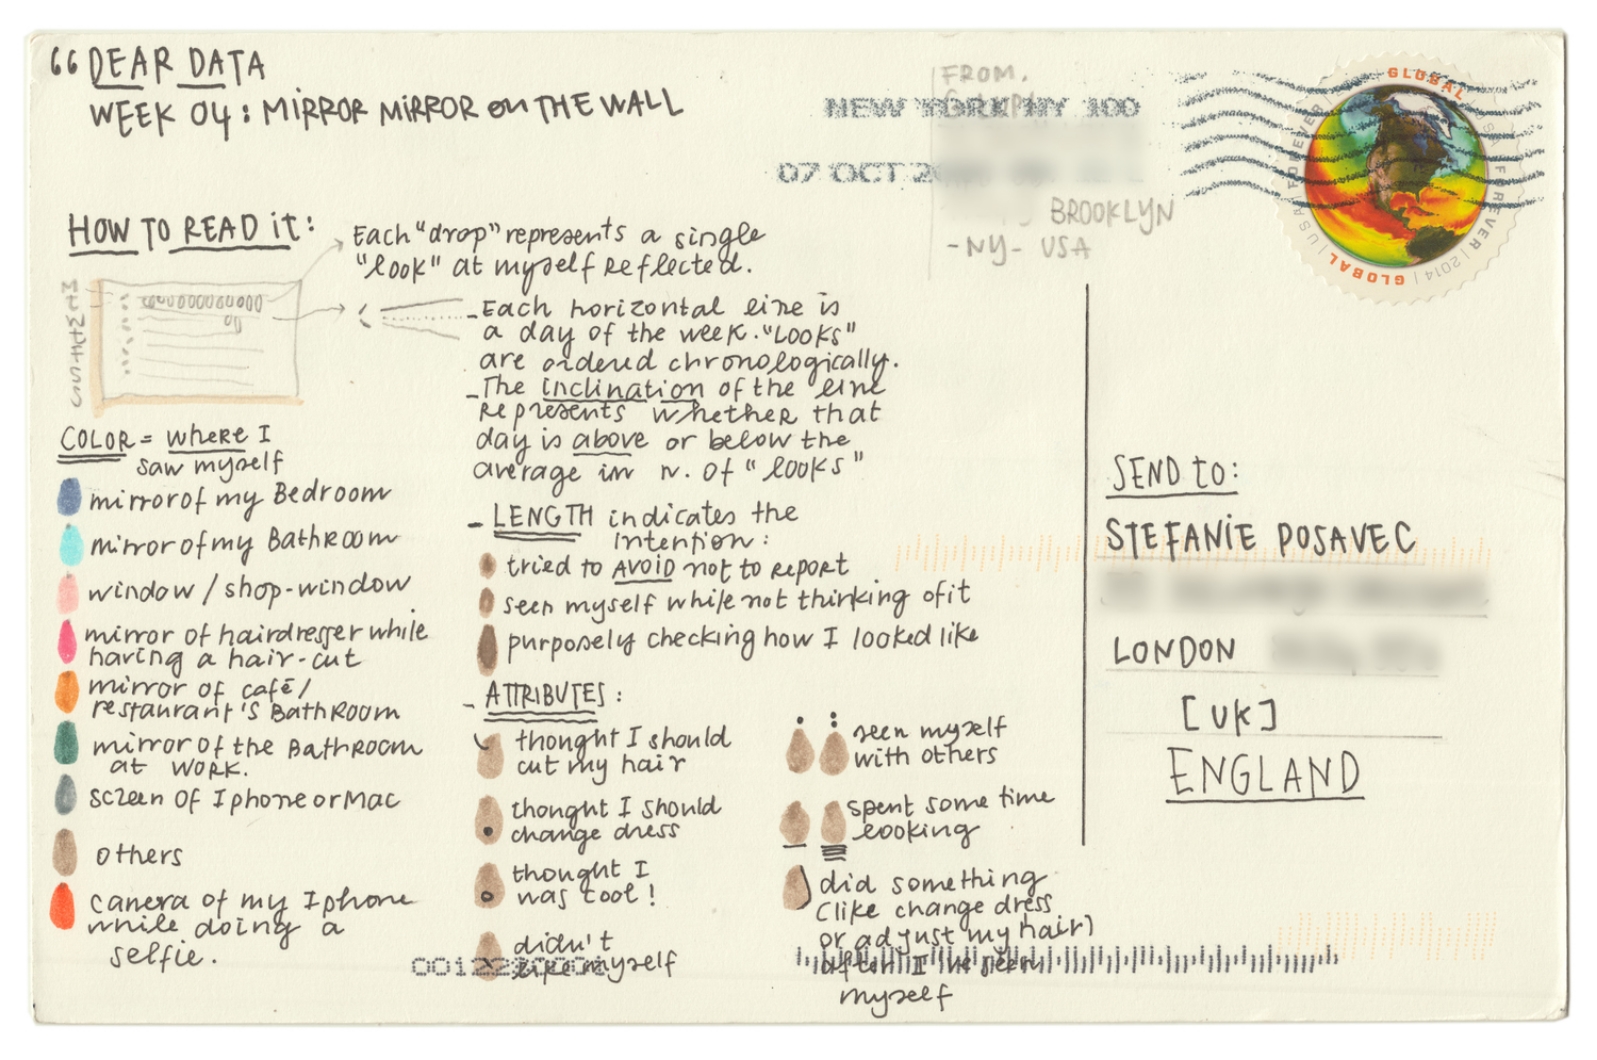 DEAR DATA
WEEK 04: MIRROR MIRROR ON THE WALL
HOW TO READ it:
Each "drop" represents a single
"look" at myself reflected.
- Each horizontal line is
a day of the week. "Looks"
are ordered chronologically.
- The inclination of the line
represents whether that
day is above or below the
average in n. of "looks"
COLOR = where I
saw myself
mirror of my Bedroom
mirror of my Bathroom
window / shop-window
mirror of hairdresser while
having a hair-cut
mirror of café/
restaurant's Bathroom
mirror of the Bathroom
at work.
screen of Iphone or Mac
others
camera of my Iphone
while doing a
selfie.
- LENGTH indicates the
intention:
tried to AVOID not to report
seen myself while not thinking of it
purposely checking how I looked like
- ATTRIBUTES:
thought I should
cut my hair
thought I should
change dress
thought I
was cool!
didn't
like myself
seen myself
with others
spent some time
looking
did something
(like change dress
or adjust my hair)
after I've seen
myself
FROM.
BROOKLYN
-NY- USA
NEW YORK NY 100
07 OCT
GLOBAL
USA FOREVER
FOREVER | 2014
GLOBAL
SEND to:
STEFANIE POSAVEC
LONDON
[UK]
ENGLAND